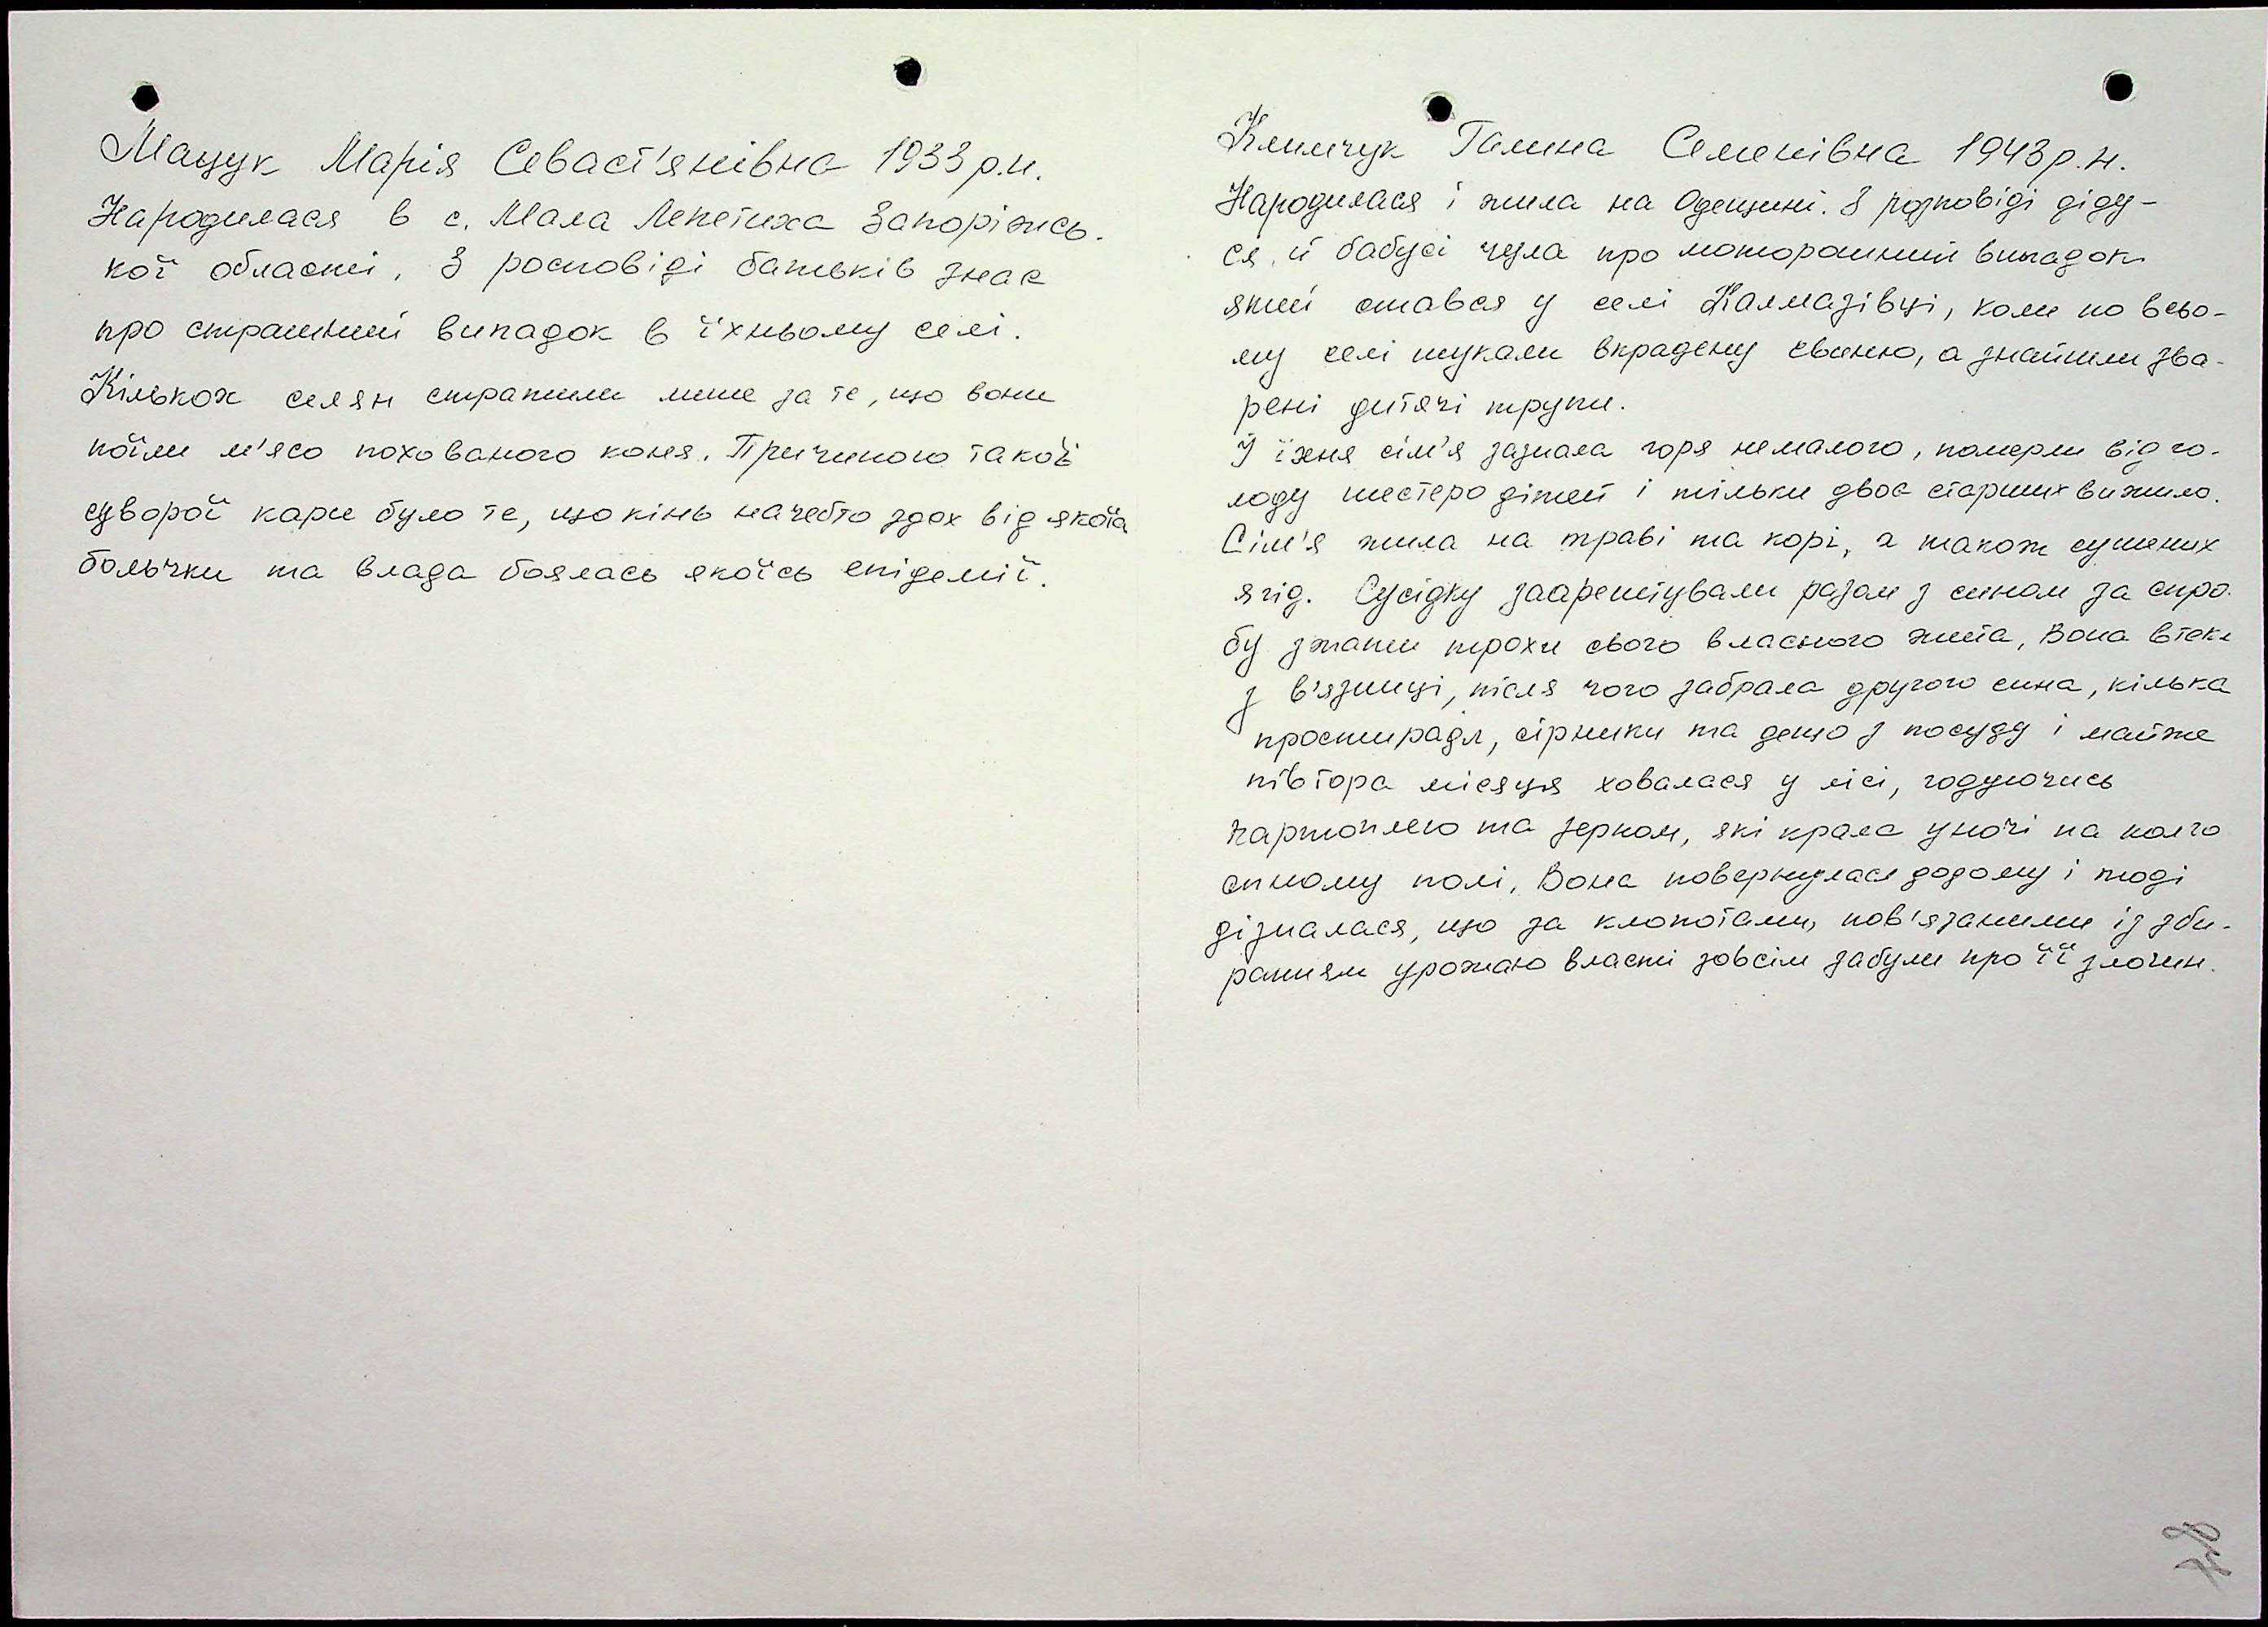 Мацук Марія Севаст'янівна 1933 р.н.
Народилася в с. Мала Лепетиха Запорізсь-
кої області. З росповіді батьків знає
про страшний випадок в їхньому селі.
Кількох селян стратили лише за те, що вони
поїли м'ясо похованого коня. Причиною такої
суворої кари було те, що кінь начебто здох від якоїа
больчки та влада боялась якоїсь епідемії.
Климчук Галина Семенівна 1943 р.н.
Народилася і жила на Одещині. З розповіді діду-
ся й бабусі чула про моторошний випадок
який стався у селі Калмазівці, коли по всьо-
му селі шукали вкрадену свиню, а знайшли зва-
рені дитячі трупи.
Й їхня сім'я зазнала горя немалого, померли від го-
лоду шестеро дітей і тільки двоє старших вижило.
Сім'я жила на траві та корі, а також сушених
ягід. Сусідку заарештували разом з сином за спро-
бу зжати трохи свого власного жита, Вона втек
з в'язниці, після чого забрала другого сина, кілька
простирадл, сірники та дещо з посуду і майже
півтора місяця ховалася у лісі, годуючись
картоплею та зерном, які крала уночі на колго
спному полі. Вона повернулася додому і тоді
дізналася, що за клопотами, пов'язаними із зби-
ранням урожаю власті зовсім забули про її злочин.